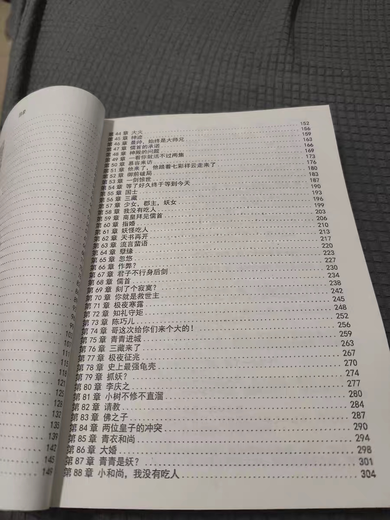 第 44 章 152
第 45 章 神迹 156
第 46 章 始终是大师兄 159
第 47 章 儒首的承诺 162
第 48 章 神殿的问题 166
第 49 章 一看你就活不过两集 169
第 50 章 恶客来访 173
第 51 章 他来了，他踏着七彩祥云走来了 176
第 52 章 御前破局 179
第 53 章 一剑惊世 183
第 54 章 等了好久终于等到今天 187
第 55 章 国士 190
第 56 章 三藏 193
第 57 章 少女，郡主，妖女 197
第 58 章 我没有吃人 200
第 59 章 拜见儒首 203
第 60 章 指婚 207
第 61 章 妖怪吃人 210
第 62 章 天书再开 213
第 63 章 流言蜚语 217
第 64 章 220
第 65 章 忽悠 223
第 66 章 作弊？ 227
第 67 章 君子不行身后剑 230
第 68 章 儒首 234
第 69 章 刻了个寂寞？ 238
第 70 章 你就是救世主 241
第 71 章 极夜寒露 245
第 72 章 知礼守矩 248
第 73 章 陈巧儿 252
第 74 章 哥这次给你们来个大的！ 256
第 75 章 青青进城 259
第 76 章 三藏来了 263
第 77 章 极夜征兆 267
第 78 章 史上最强龟壳 270
第 79 章 抓妖？ 273
第 80 章 李庆之 277
第 81 章 小树不修不直溜 280
第 82 章 请教 284
第 83 章 佛之子 287
第 84 章 两位皇子的冲突 290
第 85 章 青衣和尚 294
第 86 章 大婚 298
第 87 章 青青是妖？ 301
第 88 章 小和尚，我没有吃人 304